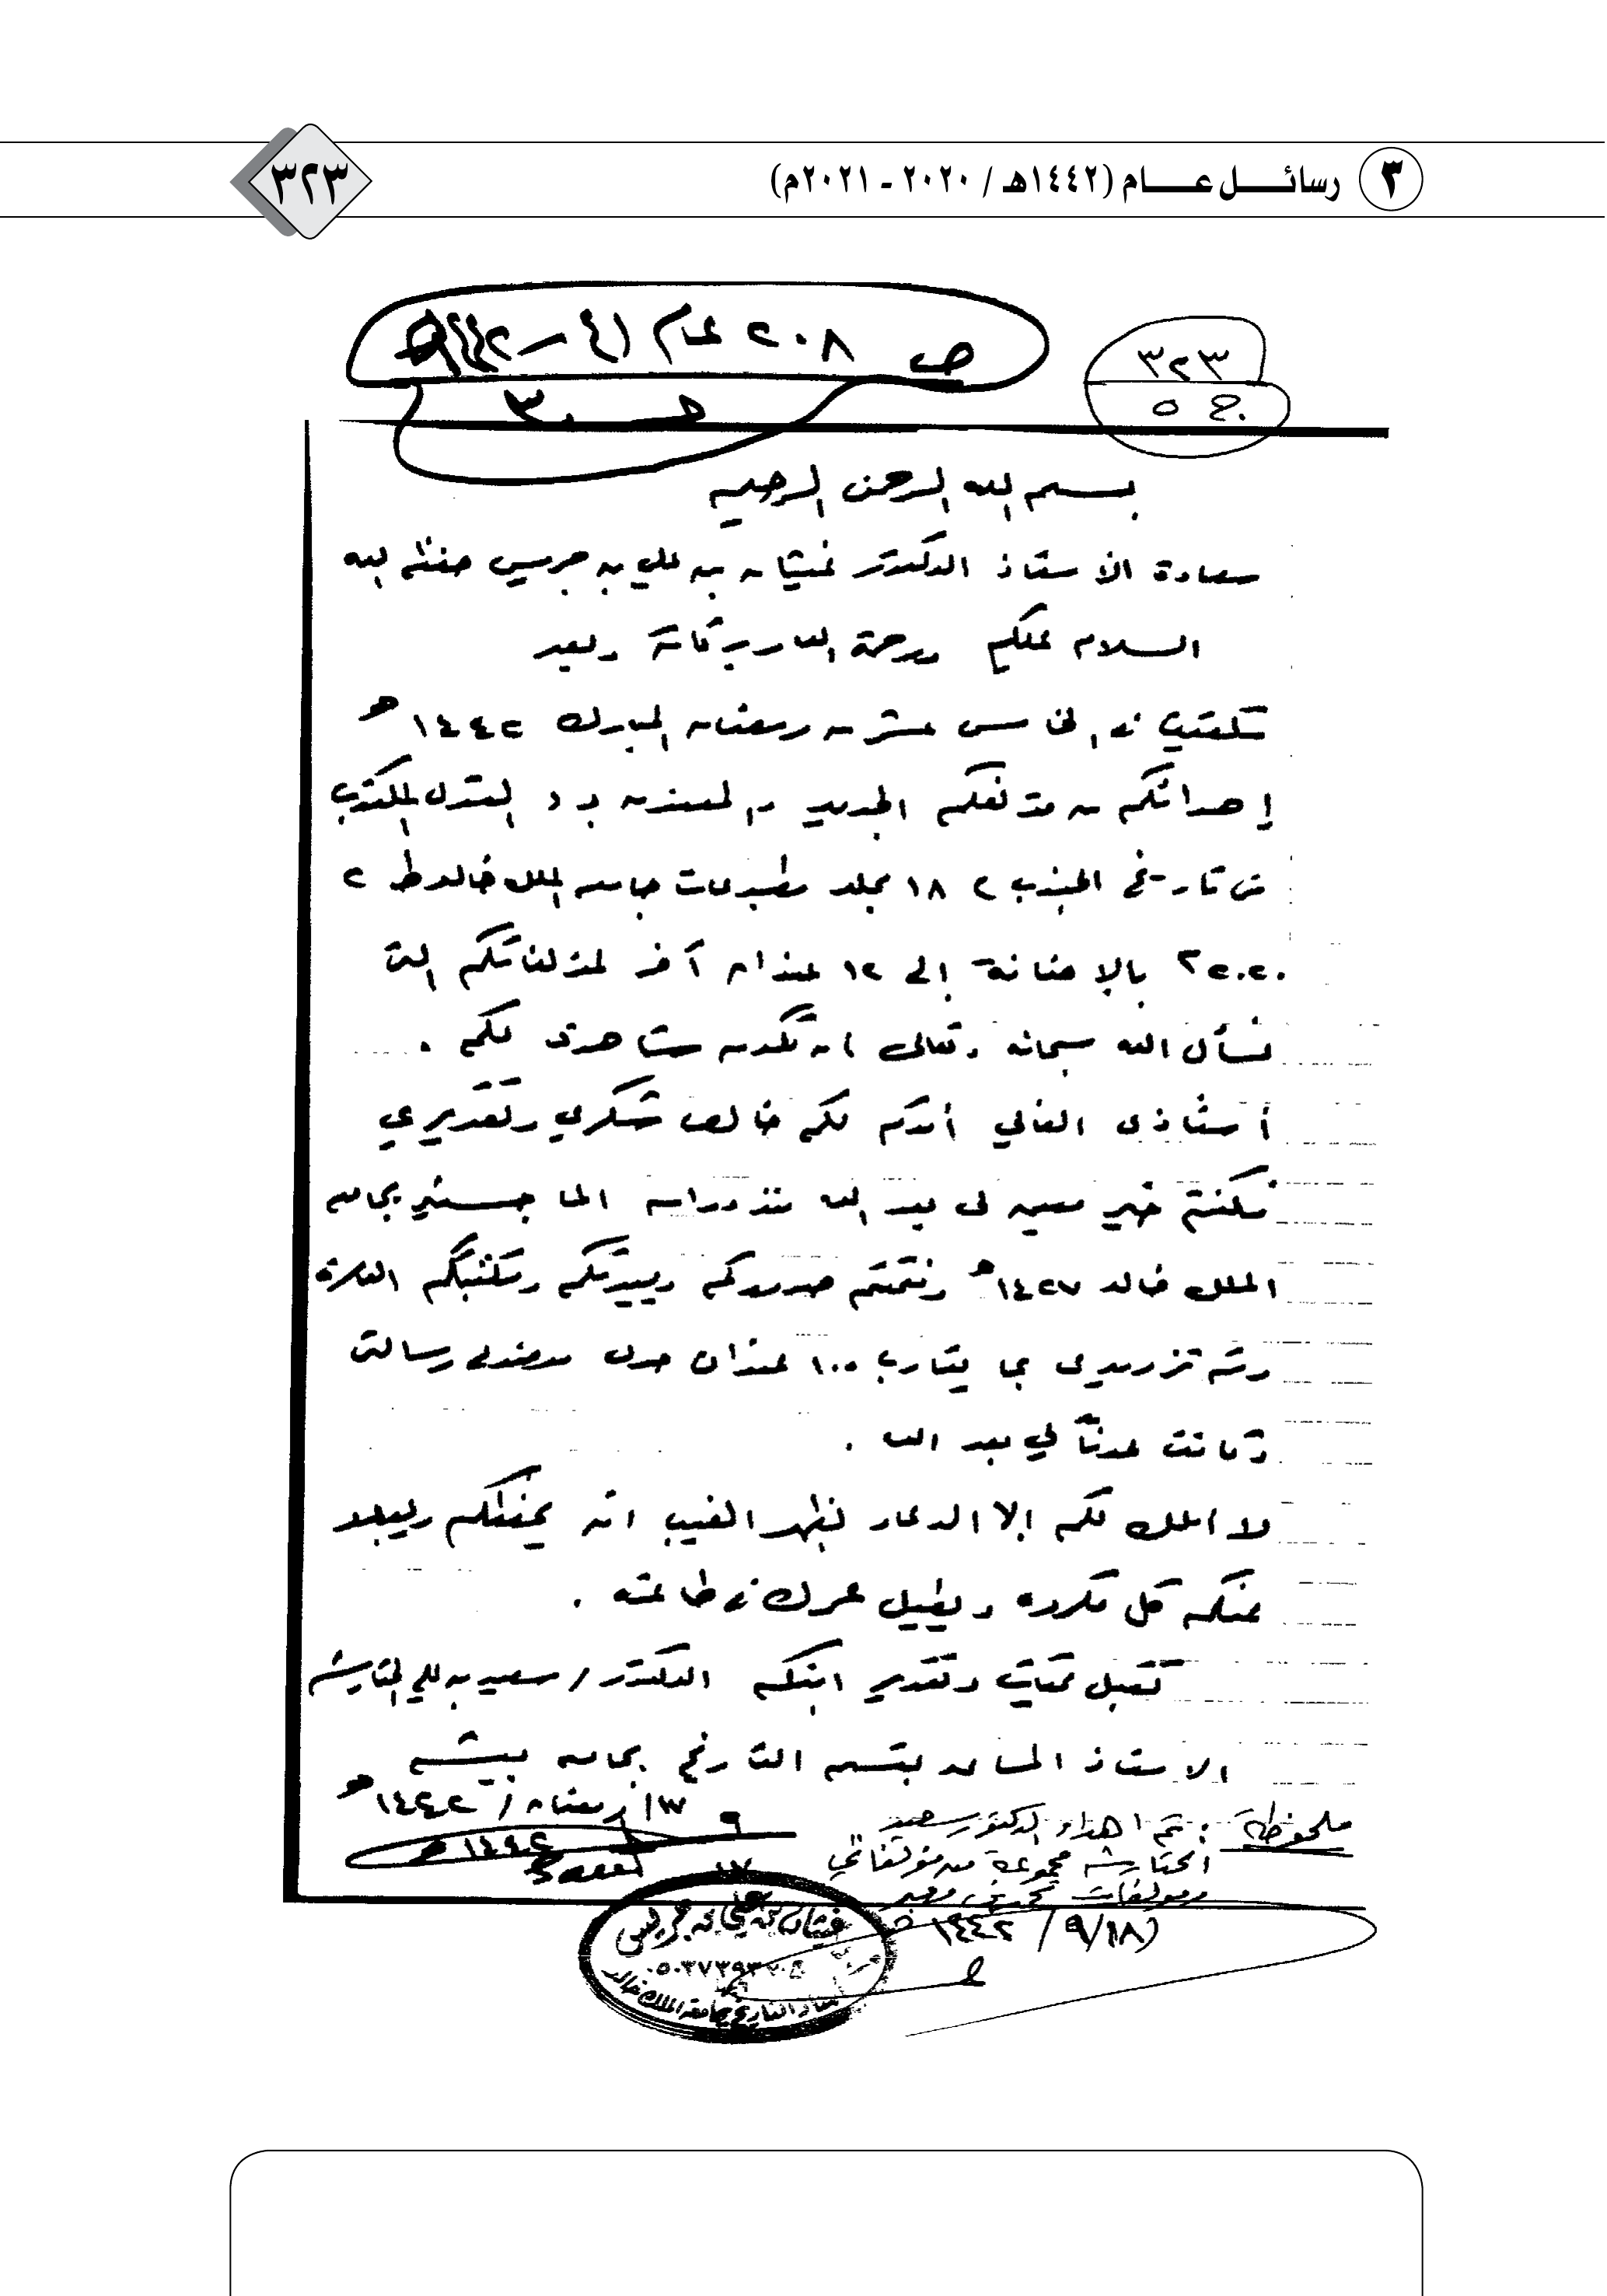 ٣ رسائل عام (١٤٤٢هـ / ٢٠٢٠ - ٢٠٢١م)
٣٢٣
ص ٢٠٨ عام ٤١ - ١٤٤٢هـ
٣٢٣
ج ٥
بسم الله الرحمن الرحيم
سعادة الأستاذ الدكتور غيثان بن علي بن جريس حفظه الله
السلام عليكم ورحمة الله وبركاته وبعد
تلقيت في الخامس عشر من رمضان المبارك ١٤٤٢هـ
إهدائكم من مؤلفكم الجديد والمعنون بـ القول المكتوب
في تاريخ الجنوب ١٨ مجلد مطبوعات جامعة الملك خالد ط ٢
٢٠٢٠م بالإضافة إلى ١٢ عنوان آخر لمؤلفاتكم التي
نسأل الله سبحانه وتعالى ان تكون شاهدة لكم .
أستاذي الغالي أقدم لكم خالص شكري وتقديري
فكنتم خير معين لي بعد الله منذ دراسة الماجستير بجامعة
الملك خالد ١٤٢٧هـ وفتحتم صدوركم وبيوتكم ومكتبتكم العامرة
وتم تزويدي بما يقارب ١٠٠ عنوان حول موضوع رسالتي
وكانت عوناً لي بعد الله .
ولا املك لكم إلا الدعاء بظهر الغيب ان يحفظكم ويبعد
عنكم كل مكروه ويطيل عمرك في طاعته .
تقبل تحيات وتقدير ابنكم الدكتور / سعيد بن علي
الاستاذ المساعد بقسم التاريخ بجامعة بيشة
١٣ / رمضان / ١٤٤٢هـ
١٤٤٢هـ
ملحوظة : تم اهداء الدكتور سعيد
مجموعة من مؤلفاتي
ومؤلفات
١٨/ ٩/ ١٤٤٢هـ
غيثان بن علي بن جريس
أستاذ التاريخ بجامعة الملك خالد